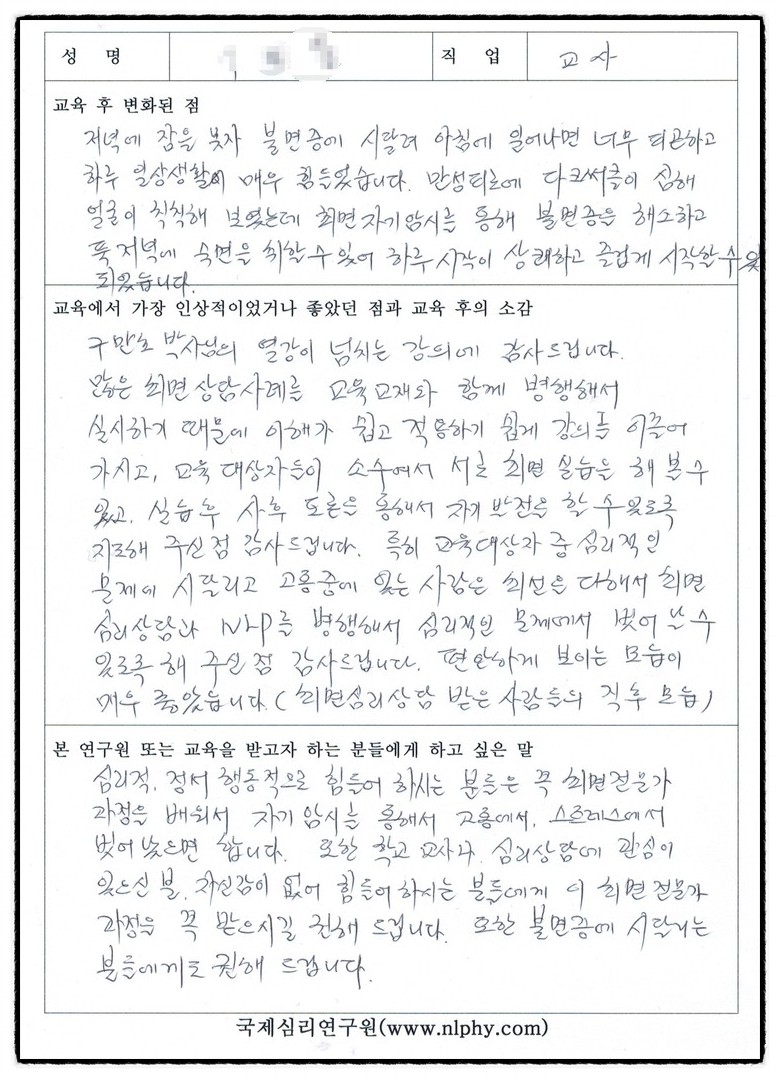 성 명 직 업 교사
교육 후 변화된 점
저녁에 잠을 못자 불면증에 시달려 아침에 일어나면 너무 피곤하고
하루 일상생활에 매우 힘들었습니다. 만성피로에 다크써클이 심해
얼굴이 칙칙해 보였는데 최면자기암시를 통해 불면증을 해소하고
푹 저녁에 숙면을 취할 수 있어 하루 시작이 상쾌하고 즐겁게 시작할 수 있
되었습니다.
교육에서 가장 인상적이었거나 좋았던 점과 교육 후의 소감
구만호 박사님의 열강이 넘치는 강의에 감사드립니다.
많은 최면상담사례를 교육교재와 함께 병행해서
실시하기 때문에 이해가 쉽고 적용하기 쉽게 강의를 이끌어
가시고, 교육 대상자들이 소수여서 서로 최면 실습을 해 볼 수
있고. 실습 후 사후 토론을 통해서 자기 발전을 할 수 있도록
지도해 주신 점 감사드립니다. 특히 교육대상자 중 심리적인
문제에 시달리고 고통중에 있는 사람은 최선을 다해서 최면
심리상담과 NLP를 병행해서 심리적인 문제에서 벗어 날 수
있도록 해 주신 점 감사드립니다. 편안하게 보이는 모습이
매우 좋았습니다.(최면심리상담 받은 사람들의 직후 모습)
본 연구원 또는 교육을 받고자 하는 분들에게 하고 싶은 말
심리적, 정서 행동적으로 힘들어 하시는 분들은 꼭 최면전문가
과정을 배워서 자기암시를 통해서 고통에서, 스트레스에서
벗어 났으면 합니다. 또한 학교 교사나, 심리상담에 관심이
있으신 분, 자신감이 없어 힘들어하시는 분들에게 이 최면전문가
과정을 꼭 받으시길 권해 드립니다. 또한 불면증에 시달리는
분들에게도 권해 드립니다.
국제심리연구원(www.nlphy.com)